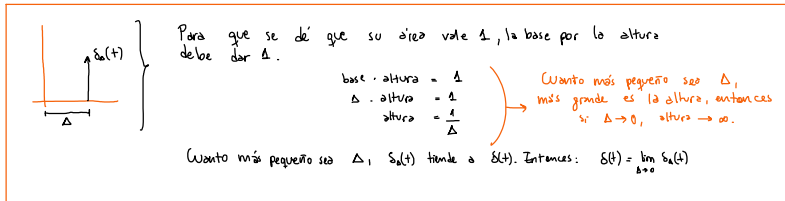 Para que se dé que su área vale 1, la base por la altura
debe dar 1.
δ_Δ(t)
Δ
base · altura = 1
Δ · altura = 1
altura = 1/Δ
Cuanto más pequeño sea Δ,
más grande es la altura, entonces
si Δ→0, altura → ∞.
Cuanto más pequeño sea Δ, δ_Δ(t) tiende a δ(t). Entonces: δ(t) = lim_{Δ→0} δ_Δ(t)